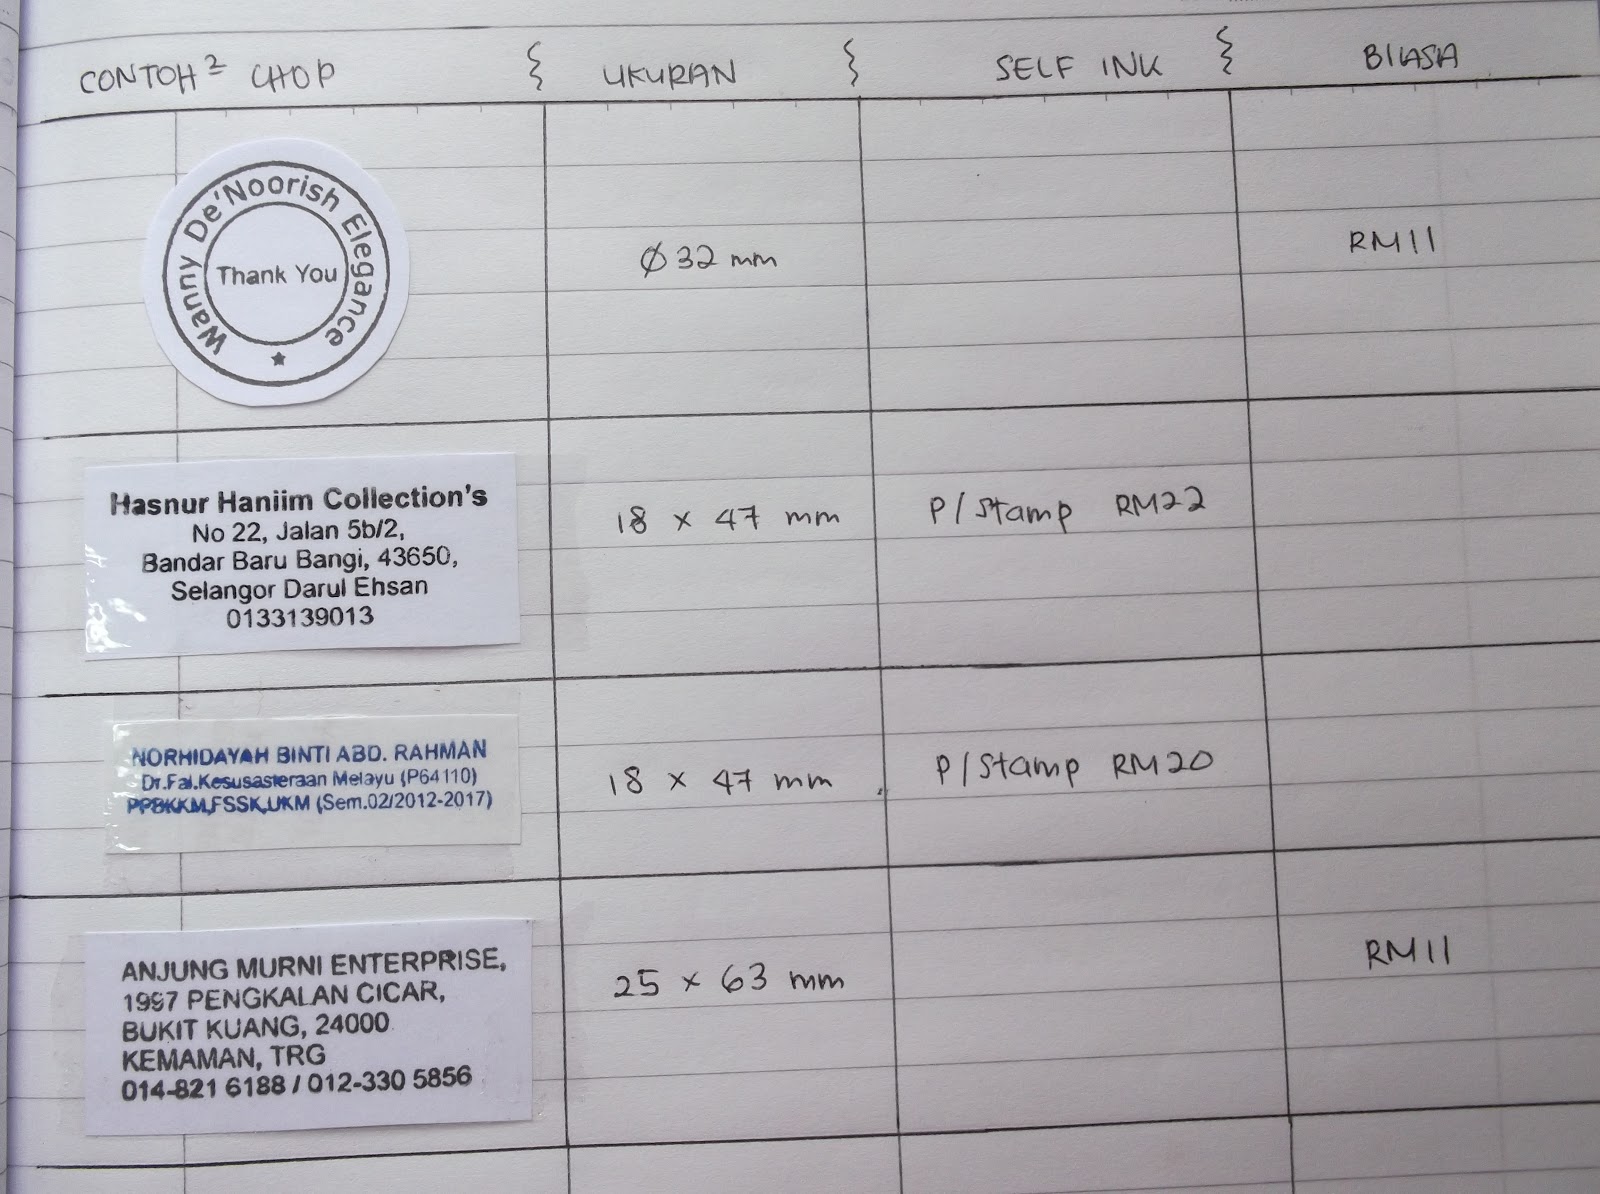 CONTOH² CHOP { UKURAN { SELF INK { BIASA
Wanny De'Noorish Elegance
Thank You
★
Ø 32 mm
RM11
Hasnur Haniim Collection's
No 22, Jalan 5b/2,
Bandar Baru Bangi, 43650,
Selangor Darul Ehsan
0133139013
18 x 47 mm
P/Stamp RM22
NORHIDAYAH BINTI ABD. RAHMAN
Dr.Fal.Kesusasteraan Melayu (P64110)
PPBKKM,FSSK,UKM (Sem.02/2012-2017)
18 x 47 mm
P/Stamp RM20
ANJUNG MURNI ENTERPRISE,
1997 PENGKALAN CICAR,
BUKIT KUANG, 24000
KEMAMAN, TRG
014-821 6188 / 012-330 5856
25 x 63 mm
RM11